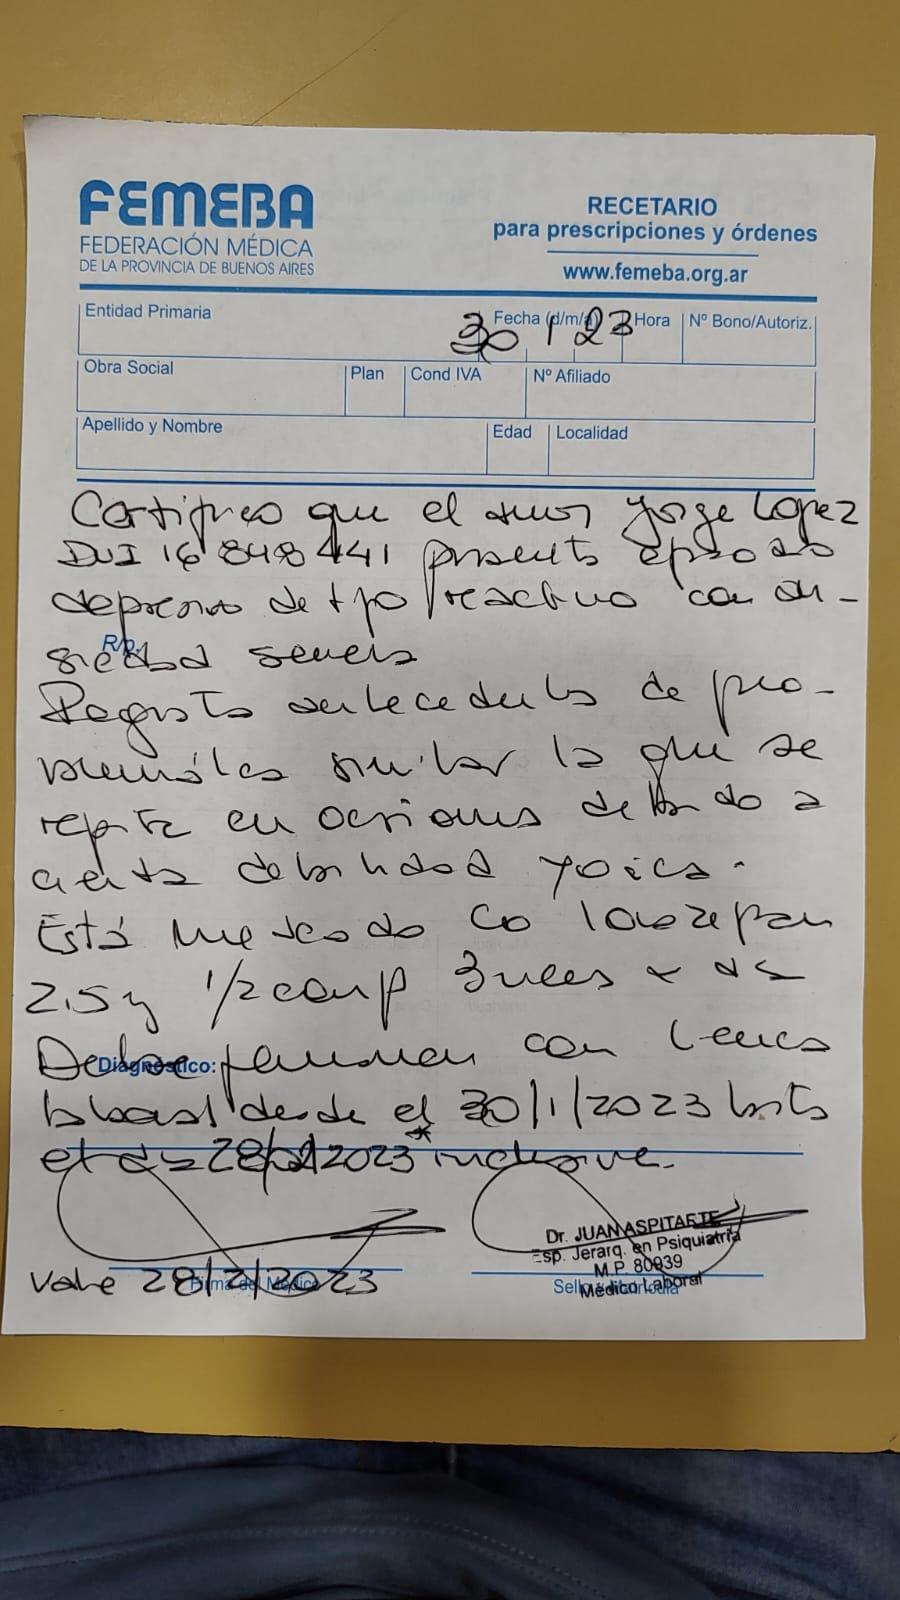 FEMEBA
FEDERACIÓN MÉDICA
DE LA PROVINCIA DE BUENOS AIRES
RECETARIO
para prescripciones y órdenes
www.femeba.org.ar
Entidad Primaria
Fecha (d/m/a) Hora Nº Bono/Autoriz.
30 1 23
Obra Social Plan Cond IVA Nº Afiliado
Apellido y Nombre Edad Localidad
Certifico que el señor Jorge Lopez
DNI 16 848 441 presenta episodio
depresivo de tipo reactivo con an-
siedad severa
R/p.
Registra antecedentes de
similar la que se
repite en ocasiones debido a
cierta debilidad yoica.
Está medicado co lorazepan
2.5 1/2 comp 3 veces x dia
Diagnóstico:
Debe permanecer con licencia
laboral desde el 30/1/2023 hasta
el dia 28/2/2023* inclusive.
Dr. JUAN ASPITARTE
Esp. Jerarq. en Psiquiatría
M.P. 80939
Médico Laboral
Vale 28/2/2023
Firma del Médico